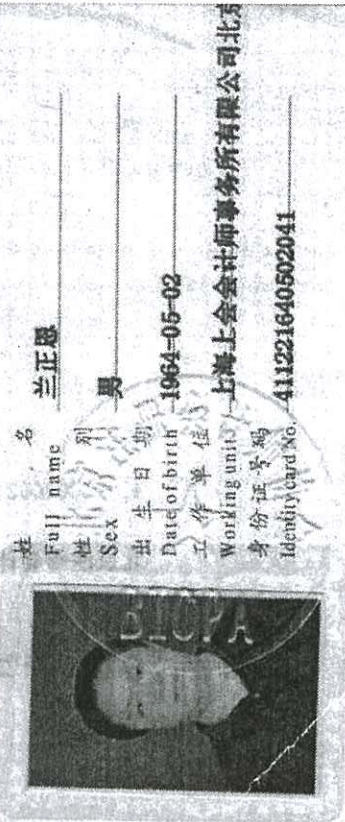 姓 名 兰正恩
Full name
性 别 男
Sex
出 生 日 期 1964-05-02
Date of birth
工 作 单 位 上海上会会计师事务所有限公司北京
Working unit
身 份 证 号 码 411221640502041
Identity card No.
BICPA